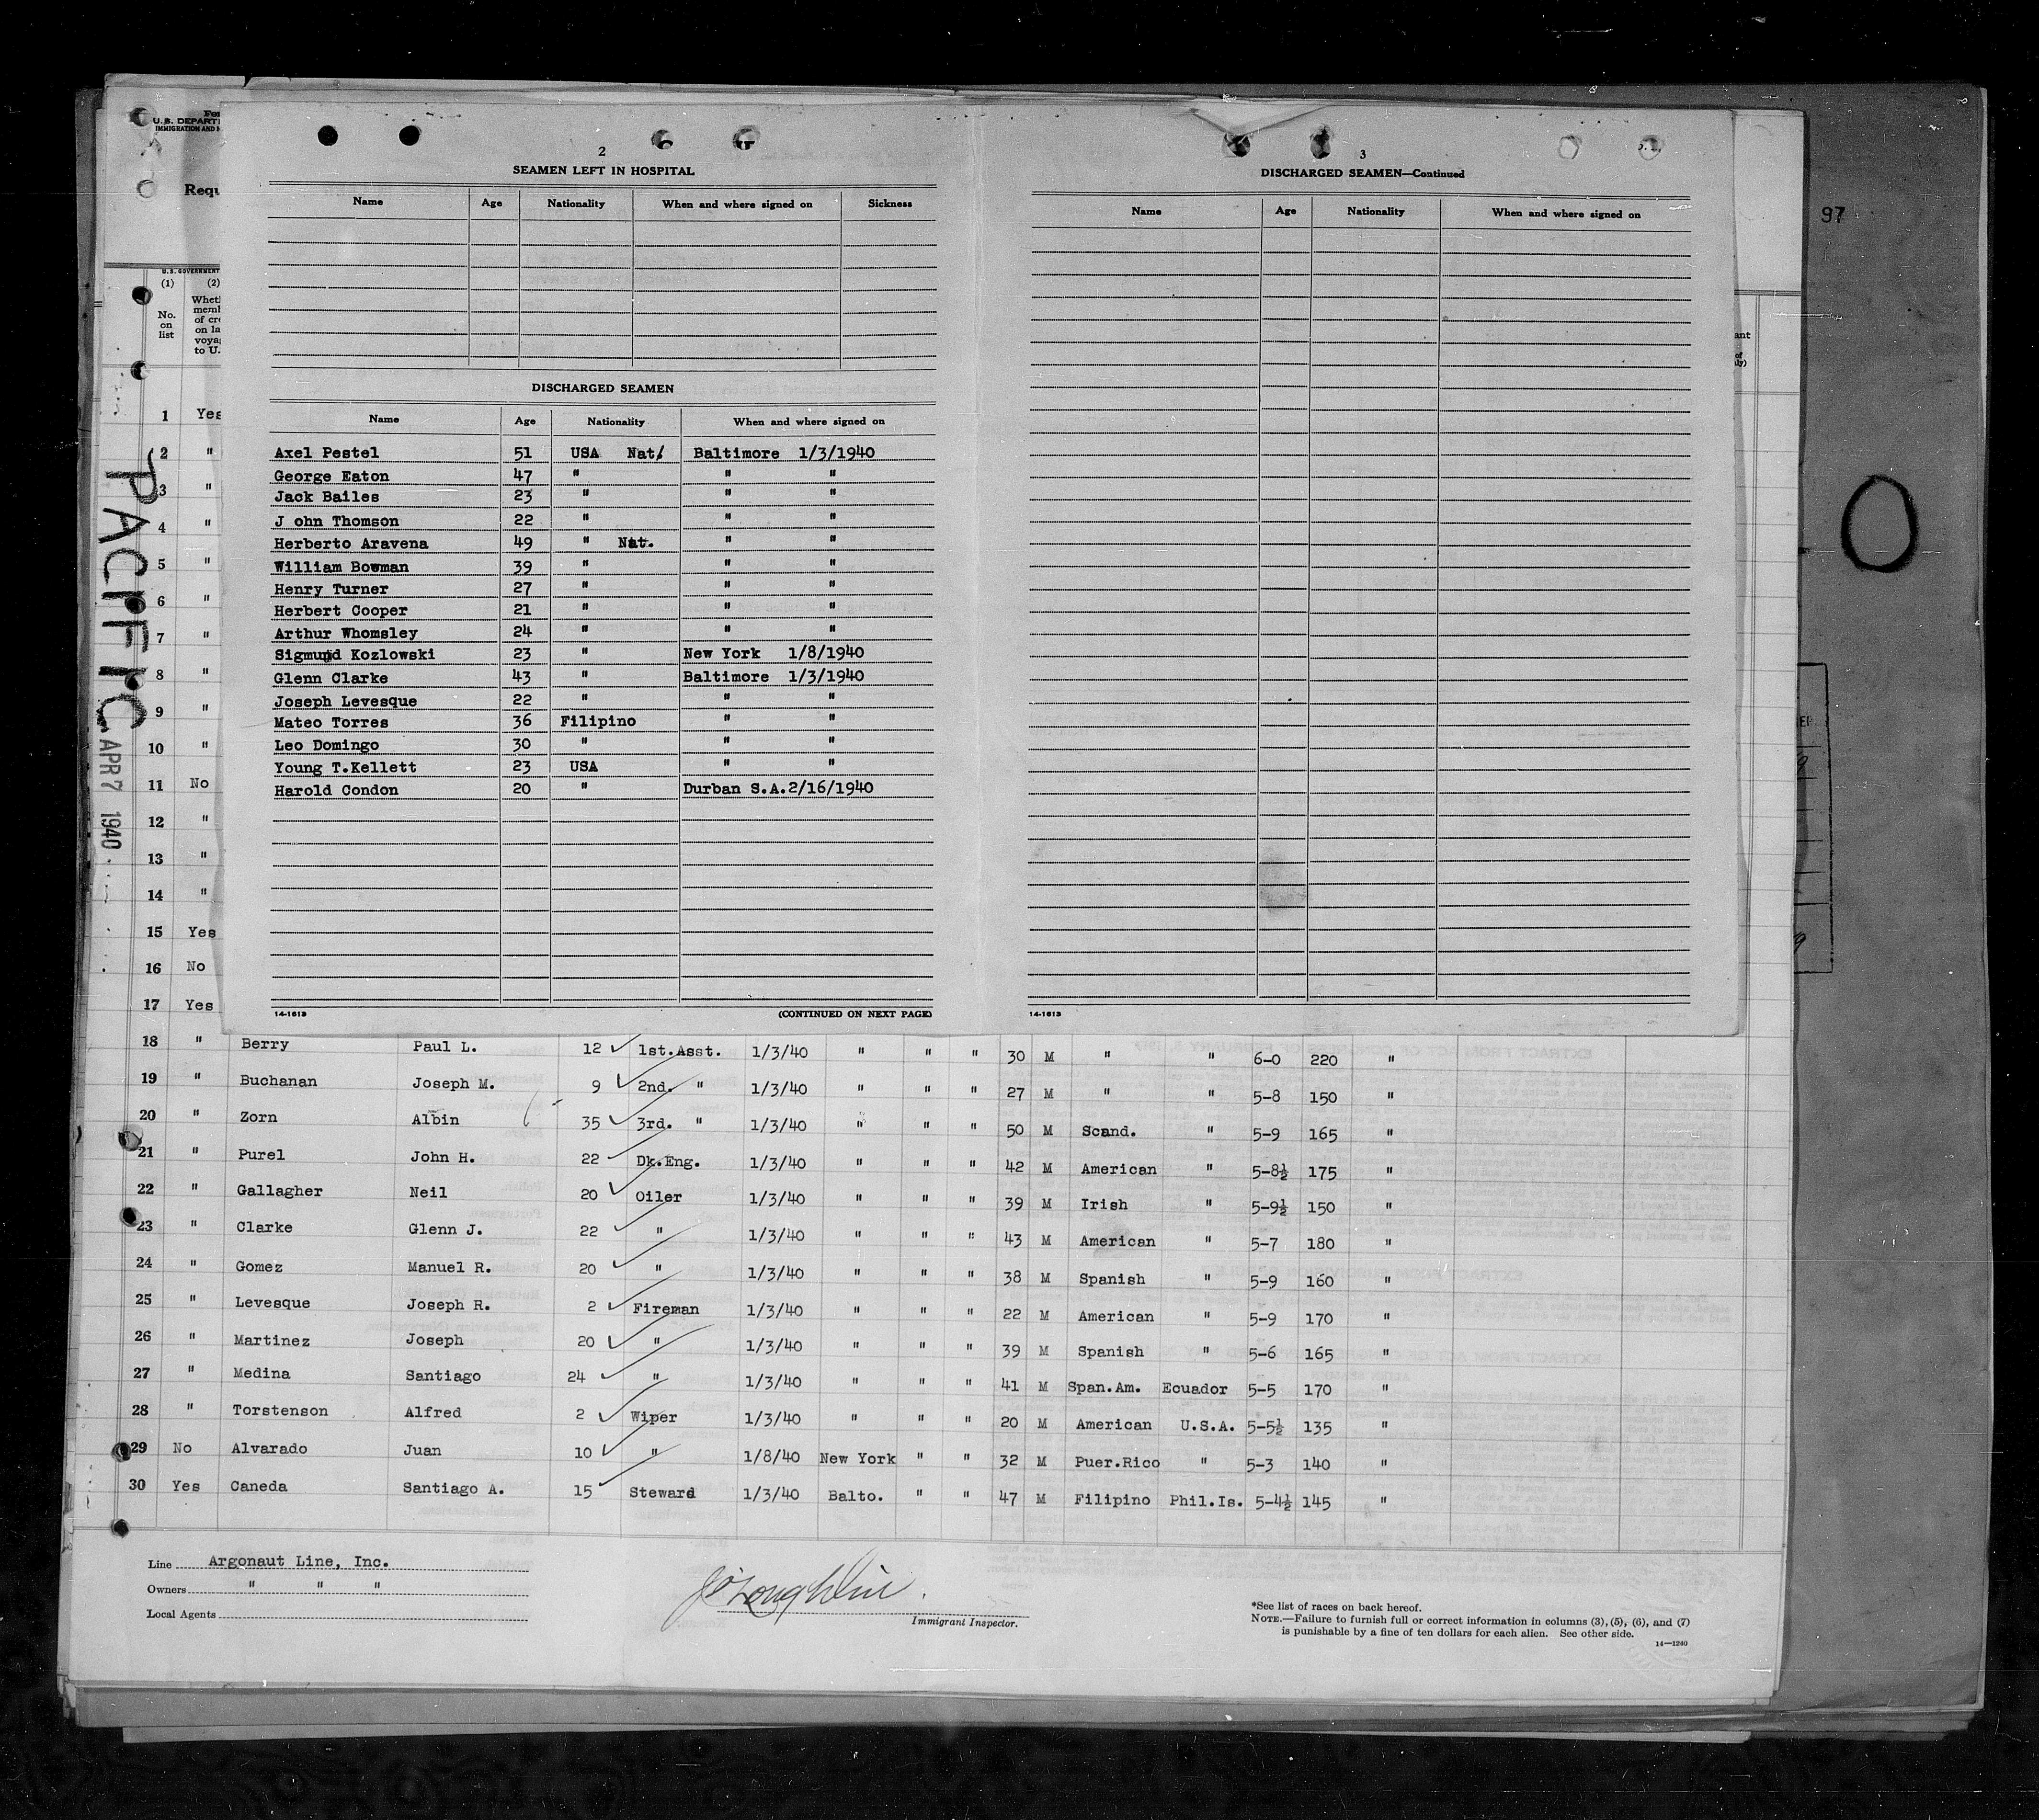 U.S. DEPART
IMMIGRATION AND N
Requ
2
SEAMEN LEFT IN HOSPITAL
Name Age Nationality When and where signed on Sickness
DISCHARGED SEAMEN
Name Age Nationality When and where signed on
Axel Pestel 51 USA Nat. Baltimore 1/3/1940
George Eaton 47 " " "
Jack Bailes 23 " " "
J ohn Thomson 22 " " "
Herberto Aravena 49 " Nat. " "
William Bowman 39 " " "
Henry Turner 27 " " "
Herbert Cooper 21 " " "
Arthur Whomsley 24 " " "
Sigmund Kozlowski 23 " New York 1/8/1940
Glenn Clarke 43 " Baltimore 1/3/1940
Joseph Levesque 22 " " "
Mateo Torres 36 Filipino " "
Leo Domingo 30 " " "
Young T.Kellett 23 USA " "
Harold Condon 20 " Durban S.A.2/16/1940
14-1613 (CONTINUED ON NEXT PAGE)
3
DISCHARGED SEAMEN—Continued
Name Age Nationality When and where signed on
14-1613
97
U.S. GOVERNMENT
(1) (2)
No. on list
Wheth
memb
of cre
on la
voyag
to U.
1 Yes
2 "
3 "
4 "
5 "
6 "
7 "
8 "
9 "
10 "
11 No
12 "
13 "
14 "
15 Yes
16 No
17 Yes
PACIFIC
APR 7 1940
18 " Berry Paul L. 12 1st.Asst. 1/3/40 " " " 30 M " " 6-0 220 "
19 " Buchanan Joseph M. 9 2nd. " 1/3/40 " " " 27 M " " 5-8 150 "
20 " Zorn Albin 35 3rd. " 1/3/40 " " " 50 M Scand. " 5-9 165 "
21 " Purel John H. 22 Dk.Eng. 1/3/40 " " " 42 M American " 5-8½ 175 "
22 " Gallagher Neil 20 Oiler 1/3/40 " " " 39 M Irish " 5-9½ 150 "
23 " Clarke Glenn J. 22 " 1/3/40 " " " 43 M American " 5-7 180 "
24 " Gomez Manuel R. 20 " 1/3/40 " " " 38 M Spanish " 5-9 160 "
25 " Levesque Joseph R. 2 Fireman 1/3/40 " " " 22 M American " 5-9 170 "
26 " Martinez Joseph 20 " 1/3/40 " " " 39 M Spanish " 5-6 165 "
27 " Medina Santiago 24 " 1/3/40 " " " 41 M Span.Am. Ecuador 5-5 170 "
28 " Torstenson Alfred 2 Wiper 1/3/40 " " " 20 M American U.S.A. 5-5½ 135 "
29 No Alvarado Juan 10 " 1/8/40 New York " " 32 M Puer.Rico " 5-3 140 "
30 Yes Caneda Santiago A. 15 Steward 1/3/40 Balto. " " 47 M Filipino Phil.Is. 5-4½ 145 "
Line Argonaut Line, Inc.
Owners " " "
Local Agents
J O'Loughlin
Immigrant Inspector.
*See list of races on back hereof.
NOTE.—Failure to furnish full or correct information in columns (3), (5), (6), and (7)
is punishable by a fine of ten dollars for each alien. See other side.
14—1240